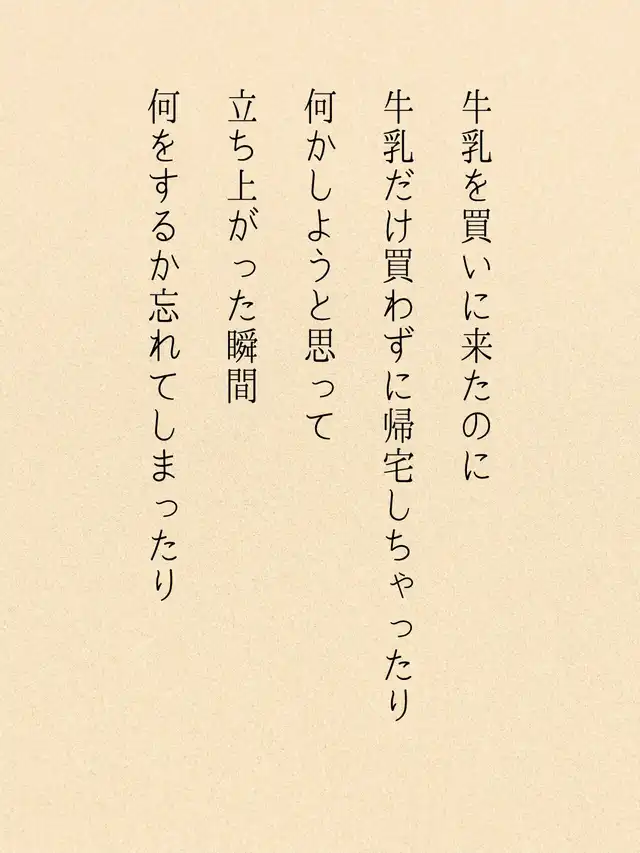 牛乳を買いに来たのに
牛乳だけ買わずに帰宅しちゃったり
何かしようと思って
立ち上がった瞬間
何をするか忘れてしまったり